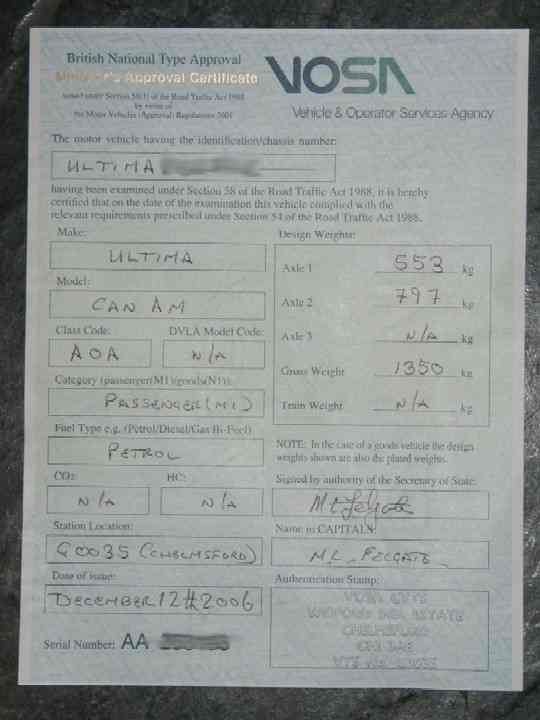 British National Type Approval
Minister's Approval Certificate
issued under Section 58(1) of the Road Traffic Act 1988
by virtue of
the Motor Vehicles (Approval) Regulations 2001
VOSA
Vehicle & Operator Services Agency
The motor vehicle having the identification/chassis number:
ULTIMA
having been examined under Section 58 of the Road Traffic Act 1988, it is hereby
certified that on the date of the examination this vehicle complied with the
relevant requirements prescribed under Section 54 of the Road Traffic Act 1988.
Make:
ULTIMA
Model:
CAN AM
Class Code: DVLA Model Code:
AOA N/A
Category (passenger(M1)/goods(N1)):
PASSENGER (M1)
Fuel Type e.g. (Petrol/Diesel/Gas Bi-Fuel)
PETROL
CO2: HC:
N/A N/A
Station Location:
G0035 (CHELMSFORD)
Date of issue:
DECEMBER 12th 2006
Serial Number: AA
Design Weights:
Axle 1 553 kg
Axle 2 797 kg
Axle 3 N/A kg
Gross Weight 1350 kg
Train Weight N/A kg
NOTE: In the case of a goods vehicle the design
weights shown are also the plated weights.
Signed by authority of the Secretary of State:
Name in CAPITALS:
M.L. FELGATE
Authentication Stamp:
WIDFORD IND. ESTATE
CHELMSFORD